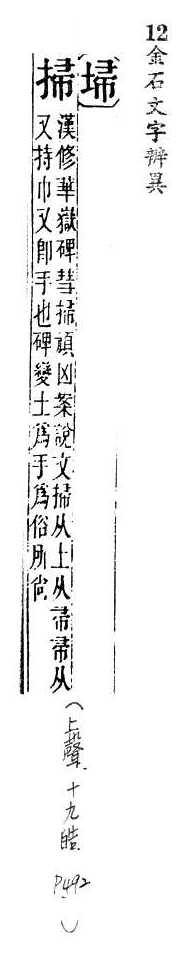 12金石文字辨異
埽
掃
漢修華嶽碑彗掃頑凶案說文掃从土从帚帚从
又持巾又卽手也碑變土爲手爲俗所尙
(上聲 十九皓 P492)